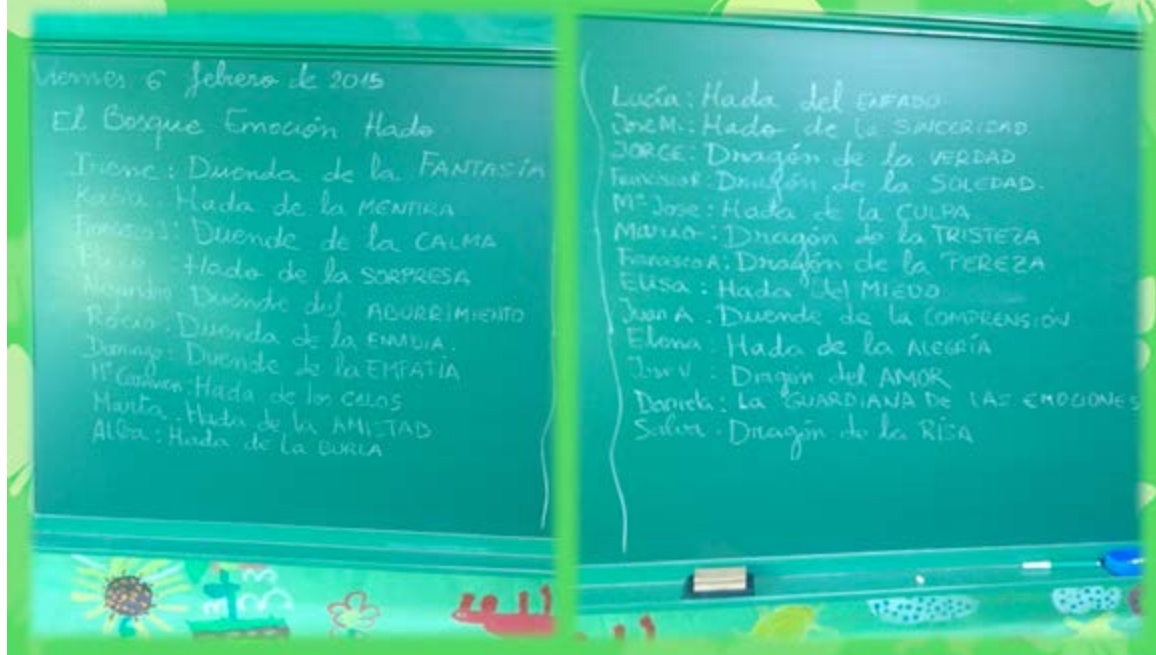 Viernes 6 febrero de 2015
El Bosque Emoción Hado
Irene: Duenda de la FANTASÍA
Hada de la MENTIRA
Duende de la CALMA
Hada de la SORPRESA
Alejandro: Duende del ABURRIMIENTO
Rocío: Duenda de la ENVIDIA.
Domingo: Duende de la EMPATÍA
Mª Carmen: Hada de los CELOS
Marta: Hada de la AMISTAD
Alba: Hada de la BURLA
Lucía: Hada del ENFADO
Jose M.: Hado de la SINCERIDAD
JORGE: Dragón de la VERDAD
Dragón de la SOLEDAD.
Mª Jose: Hada de la CULPA
Mario: Dragón de la TRISTEZA
Francisco A: Dragón de la PEREZA
Elisa: Hada del MIEDO
Juan A. Duende de la COMPRENSIÓN
Elena: Hada de la ALEGRÍA
Dragón del AMOR
Daniela: La GUARDIANA DE LAS EMOCIONES
Salva: Dragón de la RISA